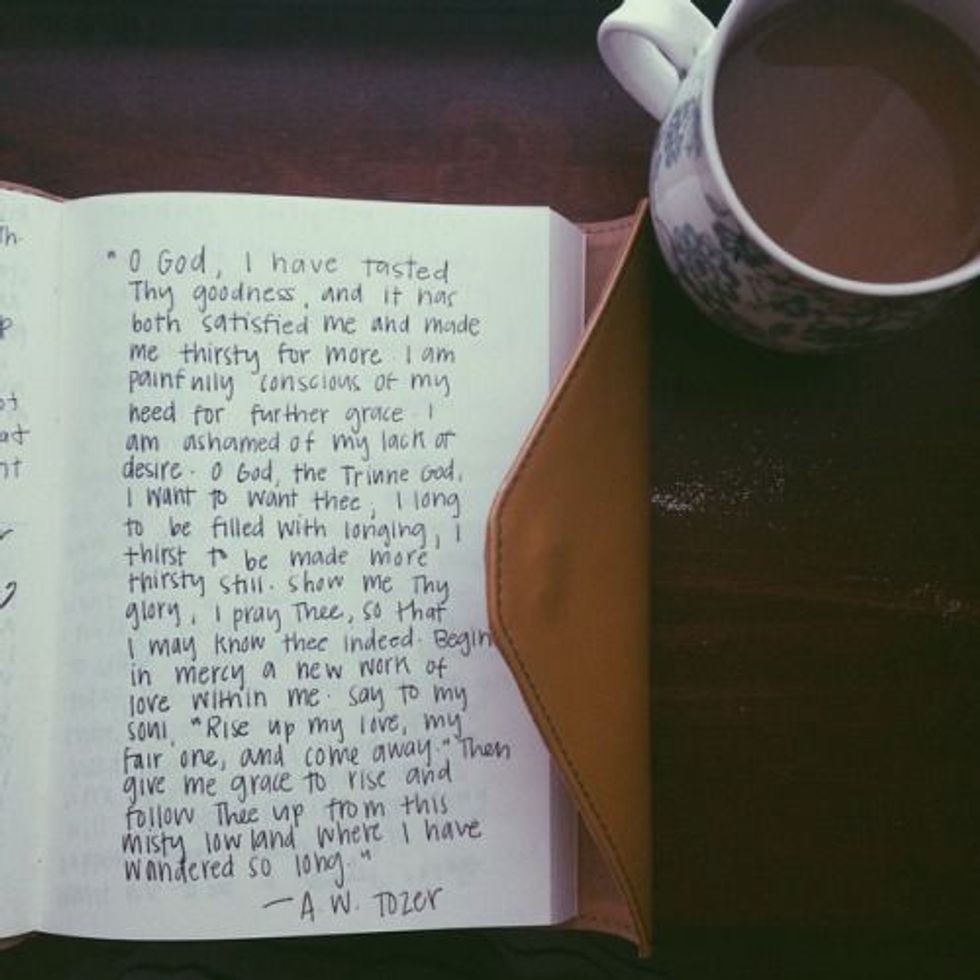 Th
p
ot
at
nt
"O God, I have tasted
Thy goodness, and it has
both satisfied me and made
me thirsty for more. I am
painfully conscious of my
need for further grace. I
am ashamed of my lack of
desire. O God, the Triune God,
I want to want thee, I long
to be filled with longing, I
thirst to be made more
thirsty still. Show me Thy
glory, I pray Thee, so that
I may know thee indeed. Begin
in mercy a new work of
love within me. say to my
soul, "Rise up my love, my
fair one, and come away." Then
give me grace to rise and
follow Thee up from this
misty lowland where I have
wandered so long."
— A. W. Tozer